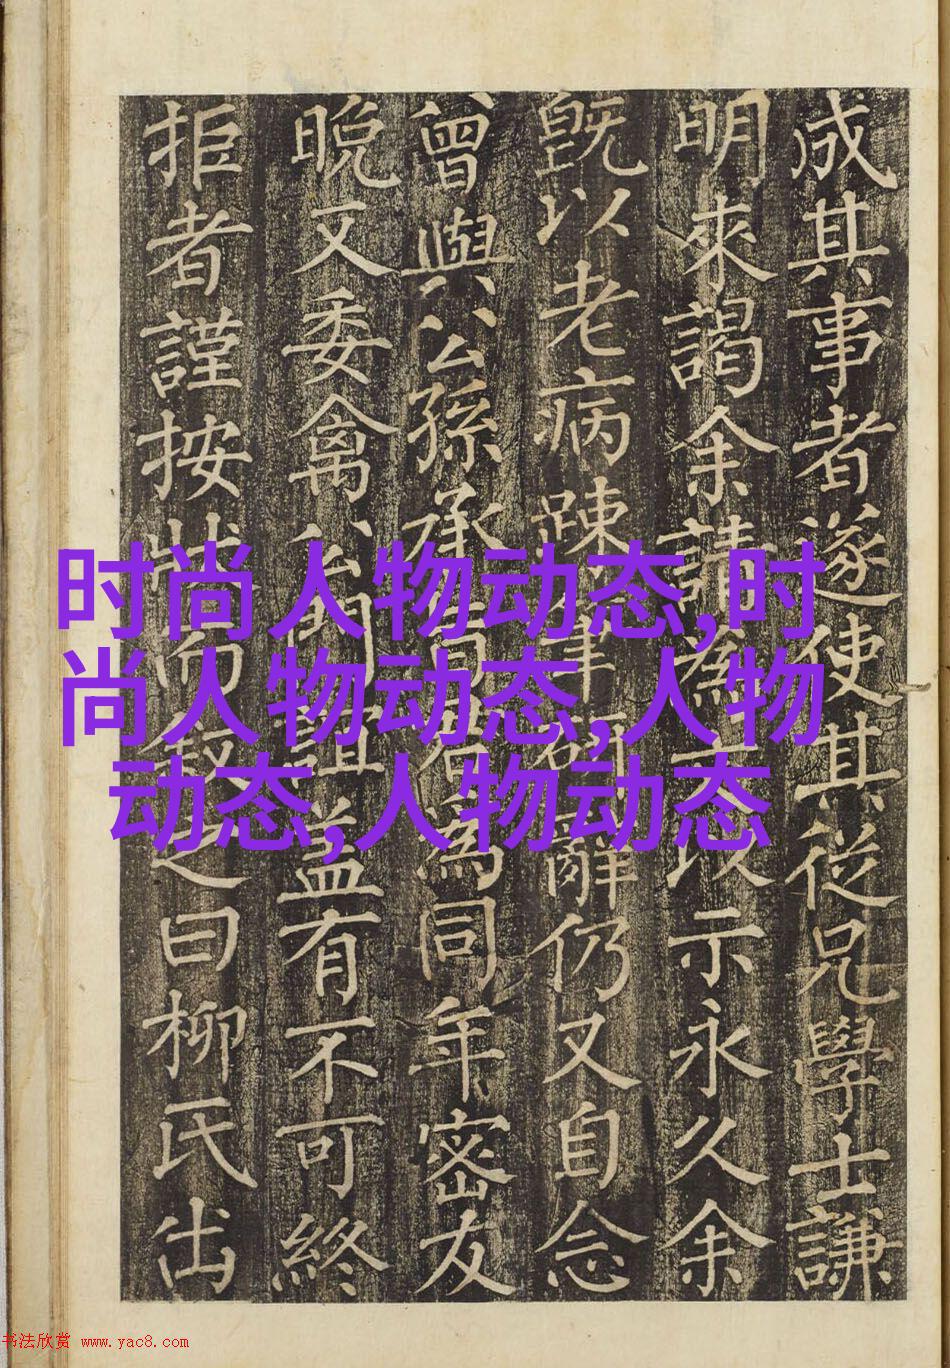 成其事者遂使其從兄學士謙
明來謁余請為以示永久余
旣以老病踈辭仍又自念
曾與公孫承為同年密友
晩又委禽公門誼益有不可終
拒者謹按狀而叙之曰柳氏出
时尚人物动态,时
尚人物动态,人物
动态,人物动态
书法欣赏 www.yac8.com